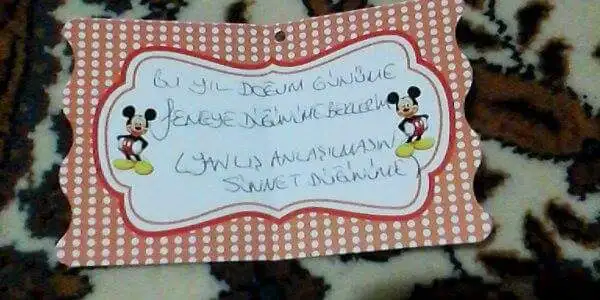 BU YIL DOĞUM GÜNÜME
SENEYE DÜĞÜNÜME BEKLERİM
(YANLIŞ ANLAŞILMASIN
SÜNNET DÜĞÜNÜME)